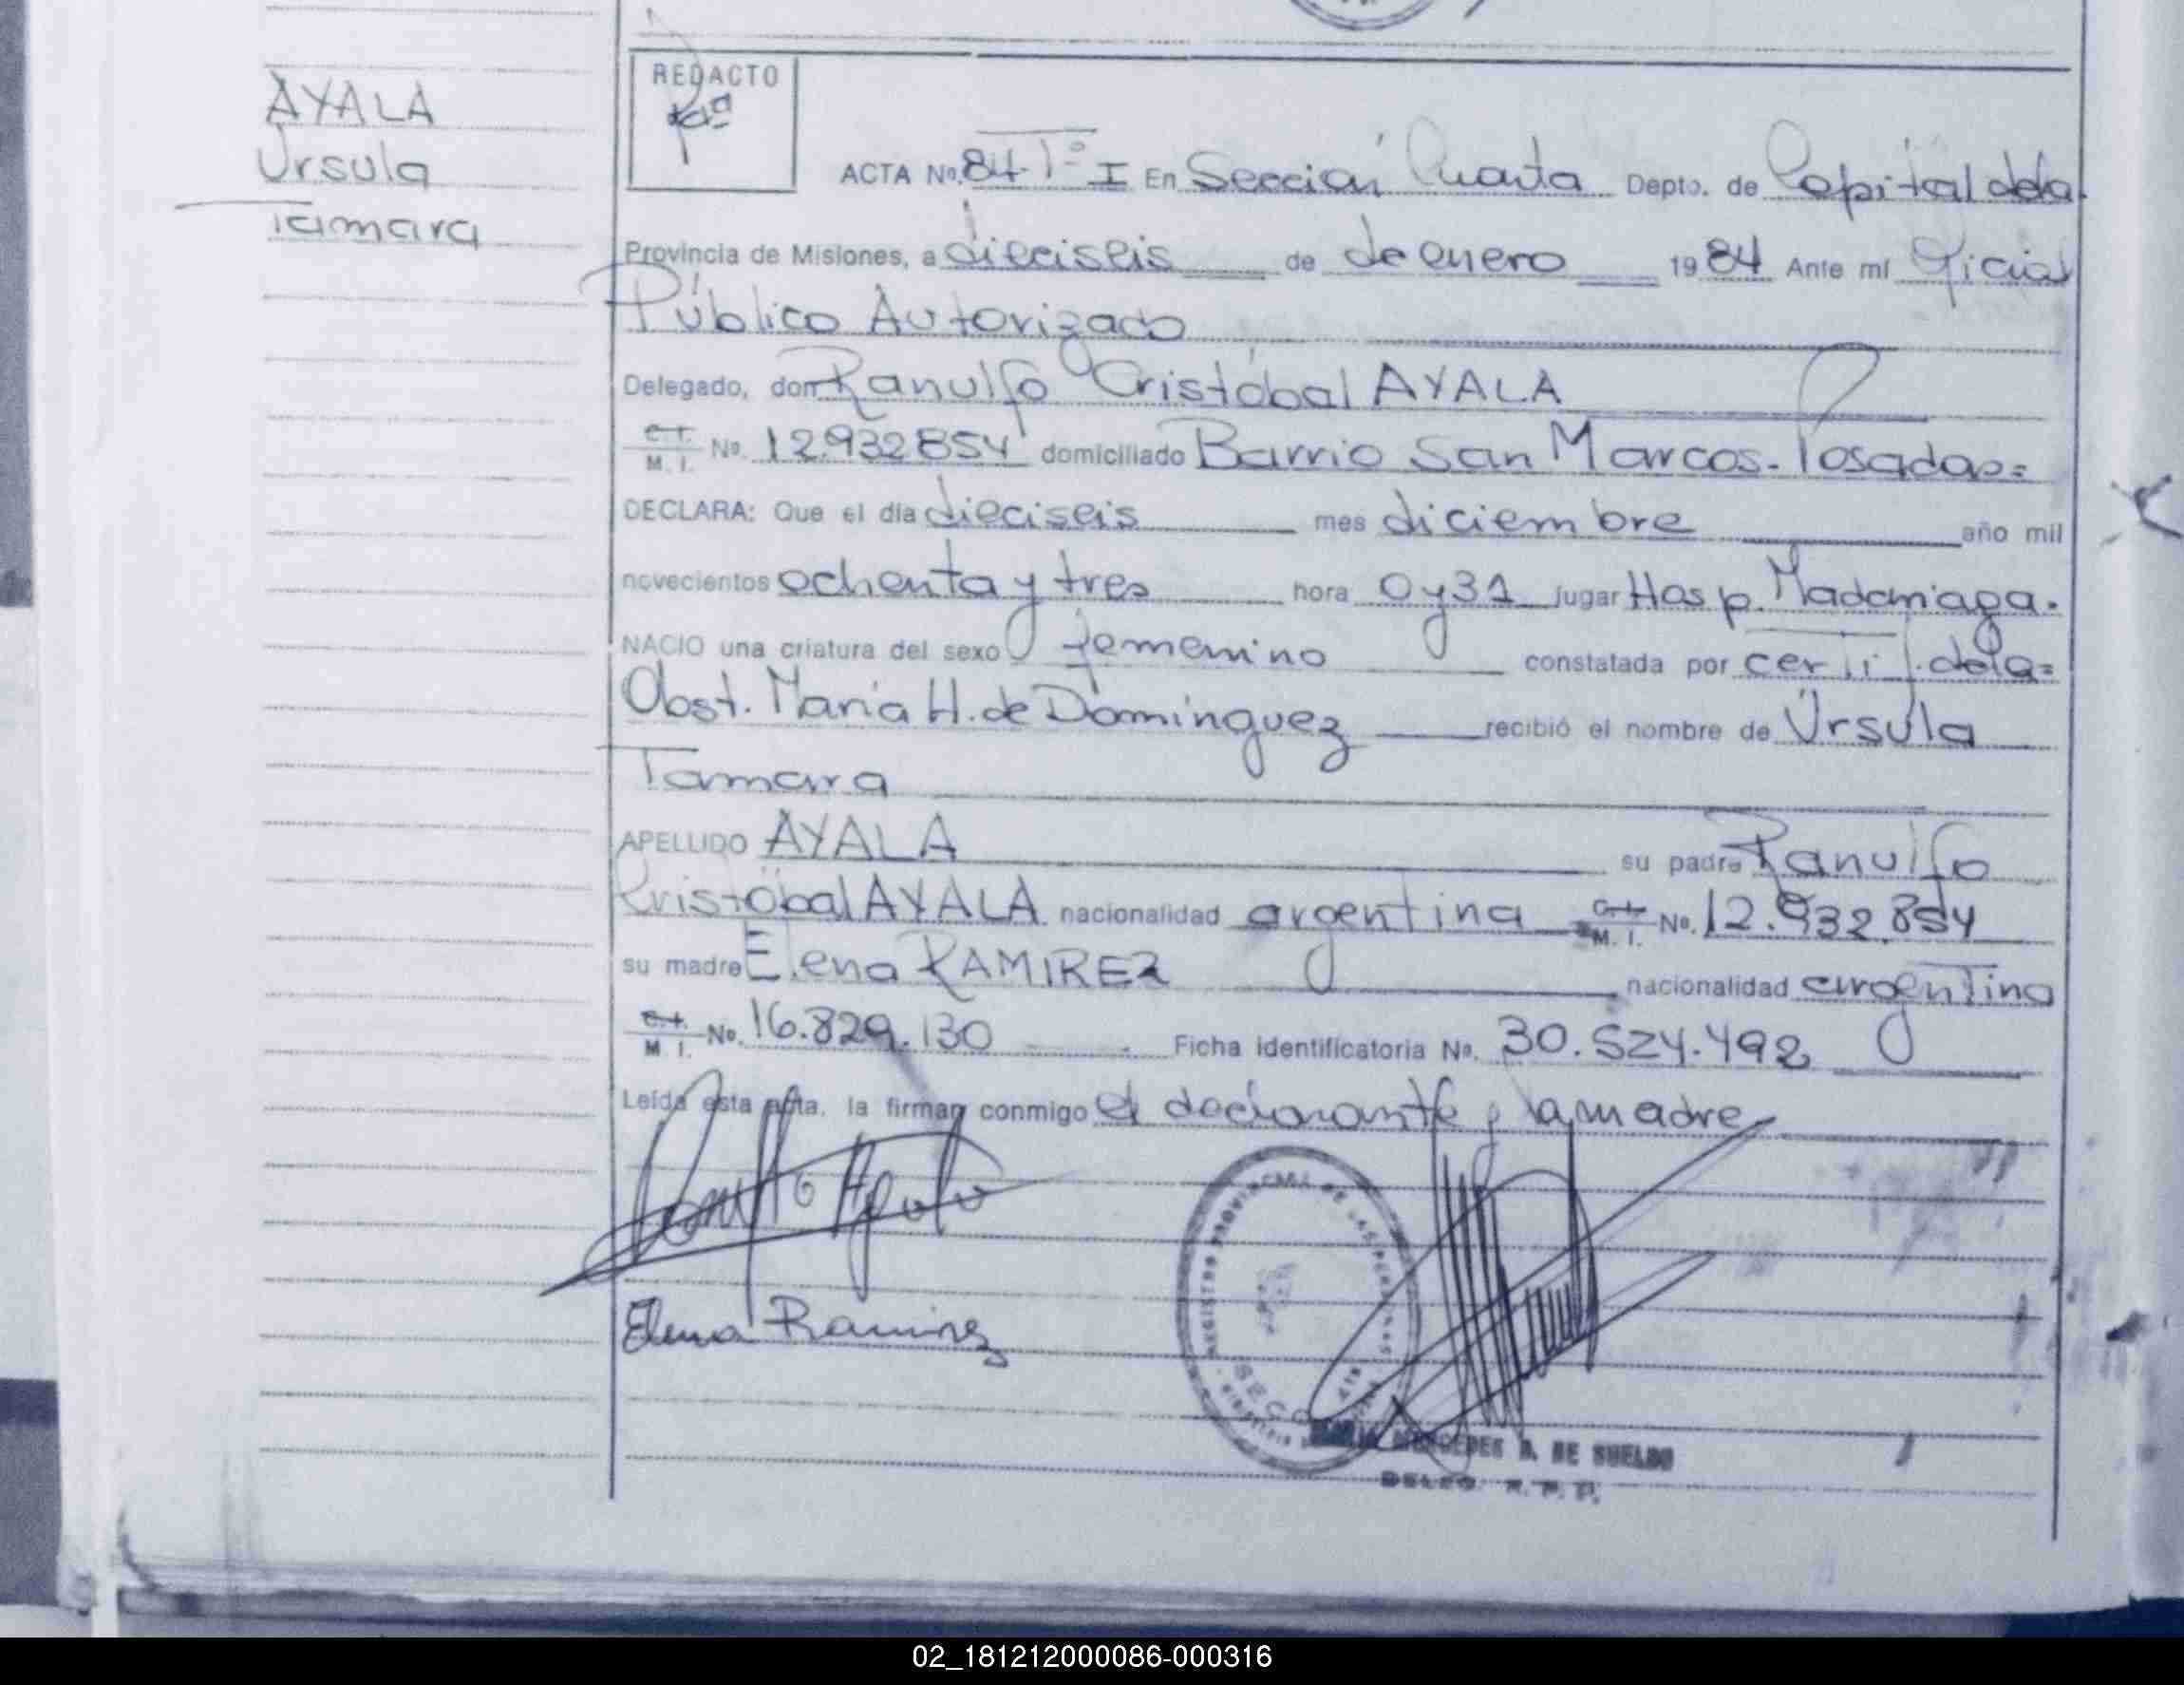 AYALA
Ursula
Tamara
REDACTO
ACTA No. 84 T° I En Sección Cuarta Depto. de Capital dela
Provincia de Misiones, a dieciseis de de enero 1984 Ante mí Oficial
Público Autorizado
Delegado, don Ranulfo Cristóbal AYALA
C.I. M. I. No. 12.932854 domiciliado Barrio San Marcos. Posadas=
DECLARA: Que el día dieciseis mes diciembre año mil
novecientos ochenta y tres hora 0y31 lugar Hosp. Madariaga.
NACIO una criatura del sexo femenino constatada por certif. dela=
Obst. Maria H. de Domínguez recibió el nombre de Úrsula
Tamara
APELLIDO AYALA su padre Ranulfo
Cristóbal AYALA nacionalidad argentina C.I. M. I. No. 12.932.854
su madre Elena RAMIREZ nacionalidad argentina
C.I. M. I. No. 16.829.130 Ficha identificatoria No. 30.524.492
Leída esta acta, la firman conmigo el declarante y la madre
Elena Ramirez
REGISTRO PROVINCIAL DE LAS PERSONAS
MERCEDES B. DE SUELDO
DELEG. R. P. P.
02_181212000086-000316